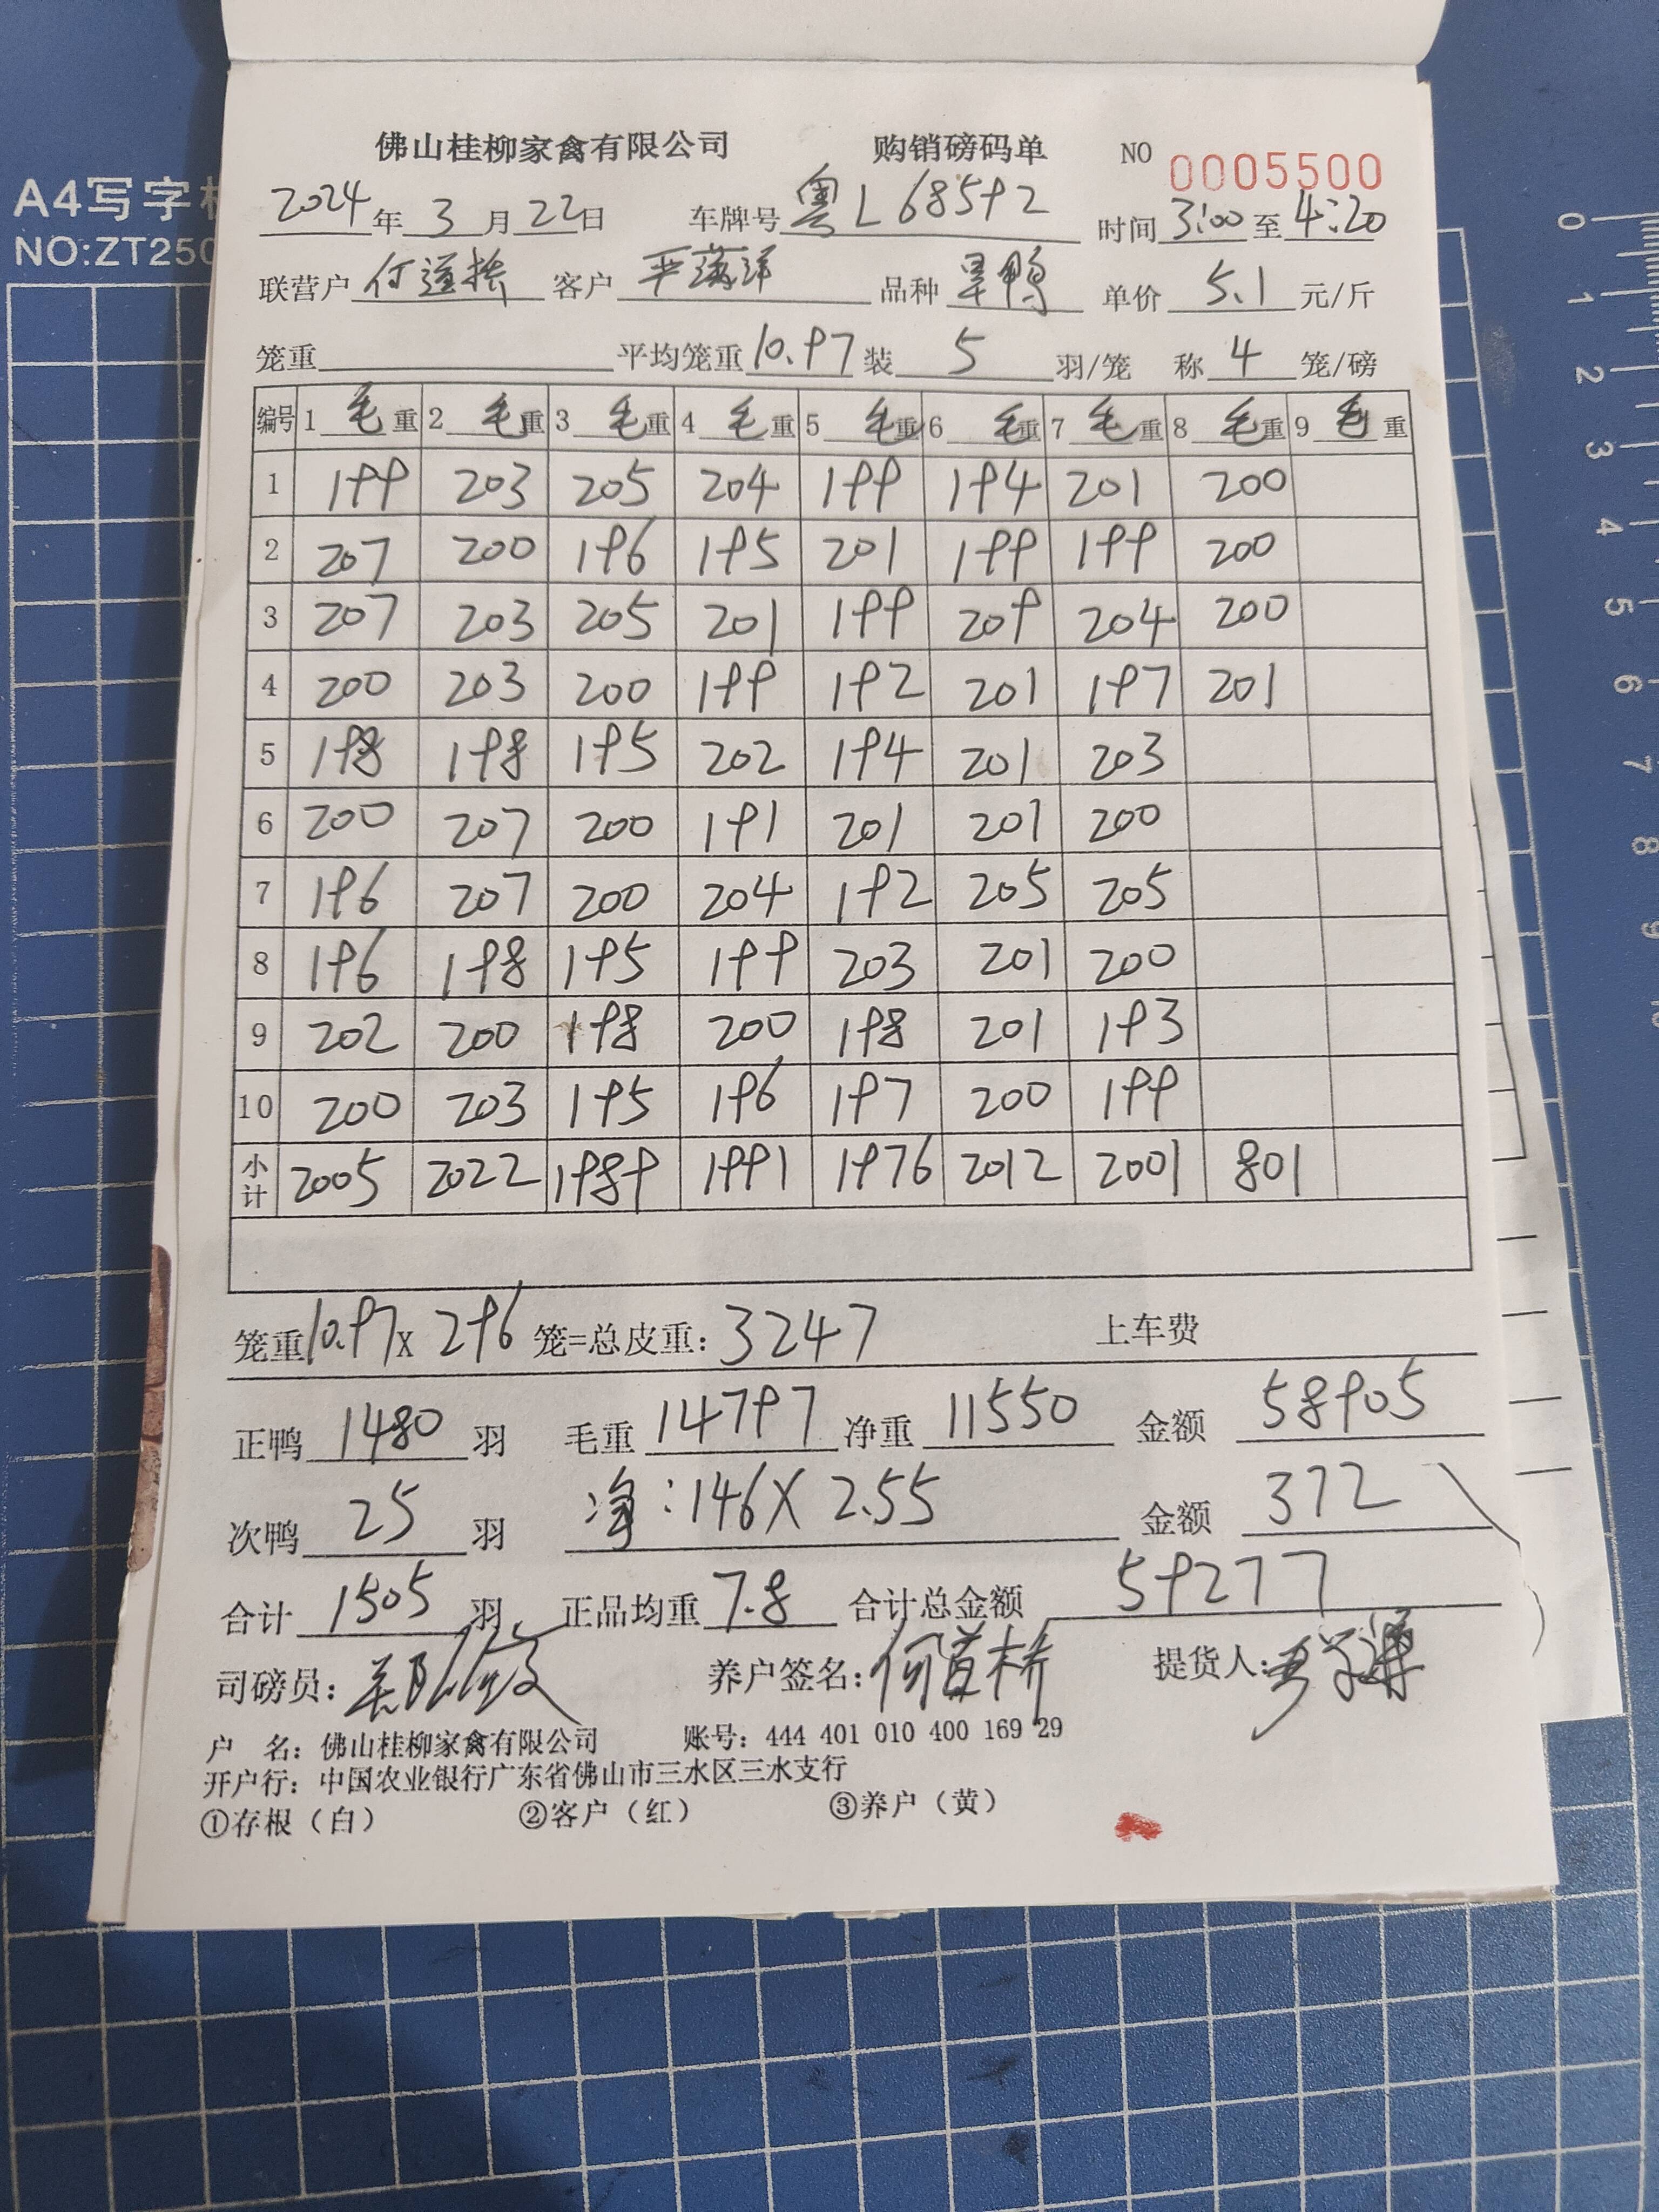 A4写字
NO:ZT250
佛山桂柳家禽有限公司 购销磅码单 NO 0005500
2024年3月22日 车牌号 粤L68592 时间 3:00 至 4:20
联营户 何道 客户 品种 旱鸭 单价 5.1 元/斤
笼重 平均笼重 10.97 装 5 羽/笼 称 4 笼/磅
编号 1 毛重 2 毛重 3 毛重 4 毛重 5 毛重 6 毛重 7 毛重 8 毛重 9 毛重
1 199 203 205 204 199 194 201 200
2 207 200 196 195 201 199 199 200
3 207 203 205 201 199 209 204 200
4 200 203 200 199 192 201 197 201
5 198 198 195 202 194 201 203
6 200 207 200 191 201 201 200
7 196 207 200 204 192 205 205
8 196 198 195 199 203 201 200
9 202 200 198 200 198 201 193
10 200 203 195 196 197 200 199
小计 2005 2022 1989 1991 1976 2012 2001 801
笼重 10.97 x 296 笼=总皮重: 3247 上车费
正鸭 1480 羽 毛重 14797 净重 11550 金额 58905
次鸭 25 羽 净:146X2.55 金额 372
合计 1505 羽 正品均重 7.8 合计总金额 59277
司磅员: 养户签名: 何道桥 提货人:
户 名: 佛山桂柳家禽有限公司 账号: 444 401 010 400 169 29
开户行: 中国农业银行广东省佛山市三水区三水支行
①存根（白） ②客户（红） ③养户（黄）
0
1
2
3
4
5
6
7
8
9
10